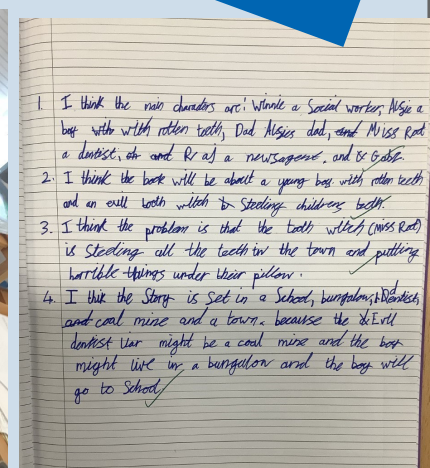 1. I think the main charaders are: Winnie a Social worker, Alsie a
boy with with rotten teeth, Dad Alsies dad, and Miss Root
a dentist, and Raj a newsagent. and Gabz.
2. I think the book will be about a young boy with rotten teeth
and an evill tooth witch Steeling childrens teeth.
3. I think the problem is that the toth witch (miss Root)
is Steeling all the teeth in the town and putting
horrible things under their pillow.
4. I thik the Story is Set in a School, bungalow, Dentist,
and coal mine and a town. because the Evll
dentist liar might be a coal mine and the boy
might live in a bungalow and the boy will
go to School